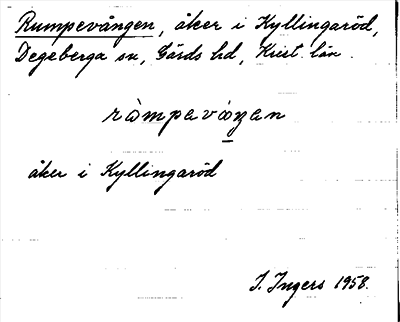 Rumpevången, åker i Kyllingaröd,
Degeberga sn, Gärds hd, Krist. län.
ràmpavàŋan
åker i Kyllingaröd
I. Ingers 1958.